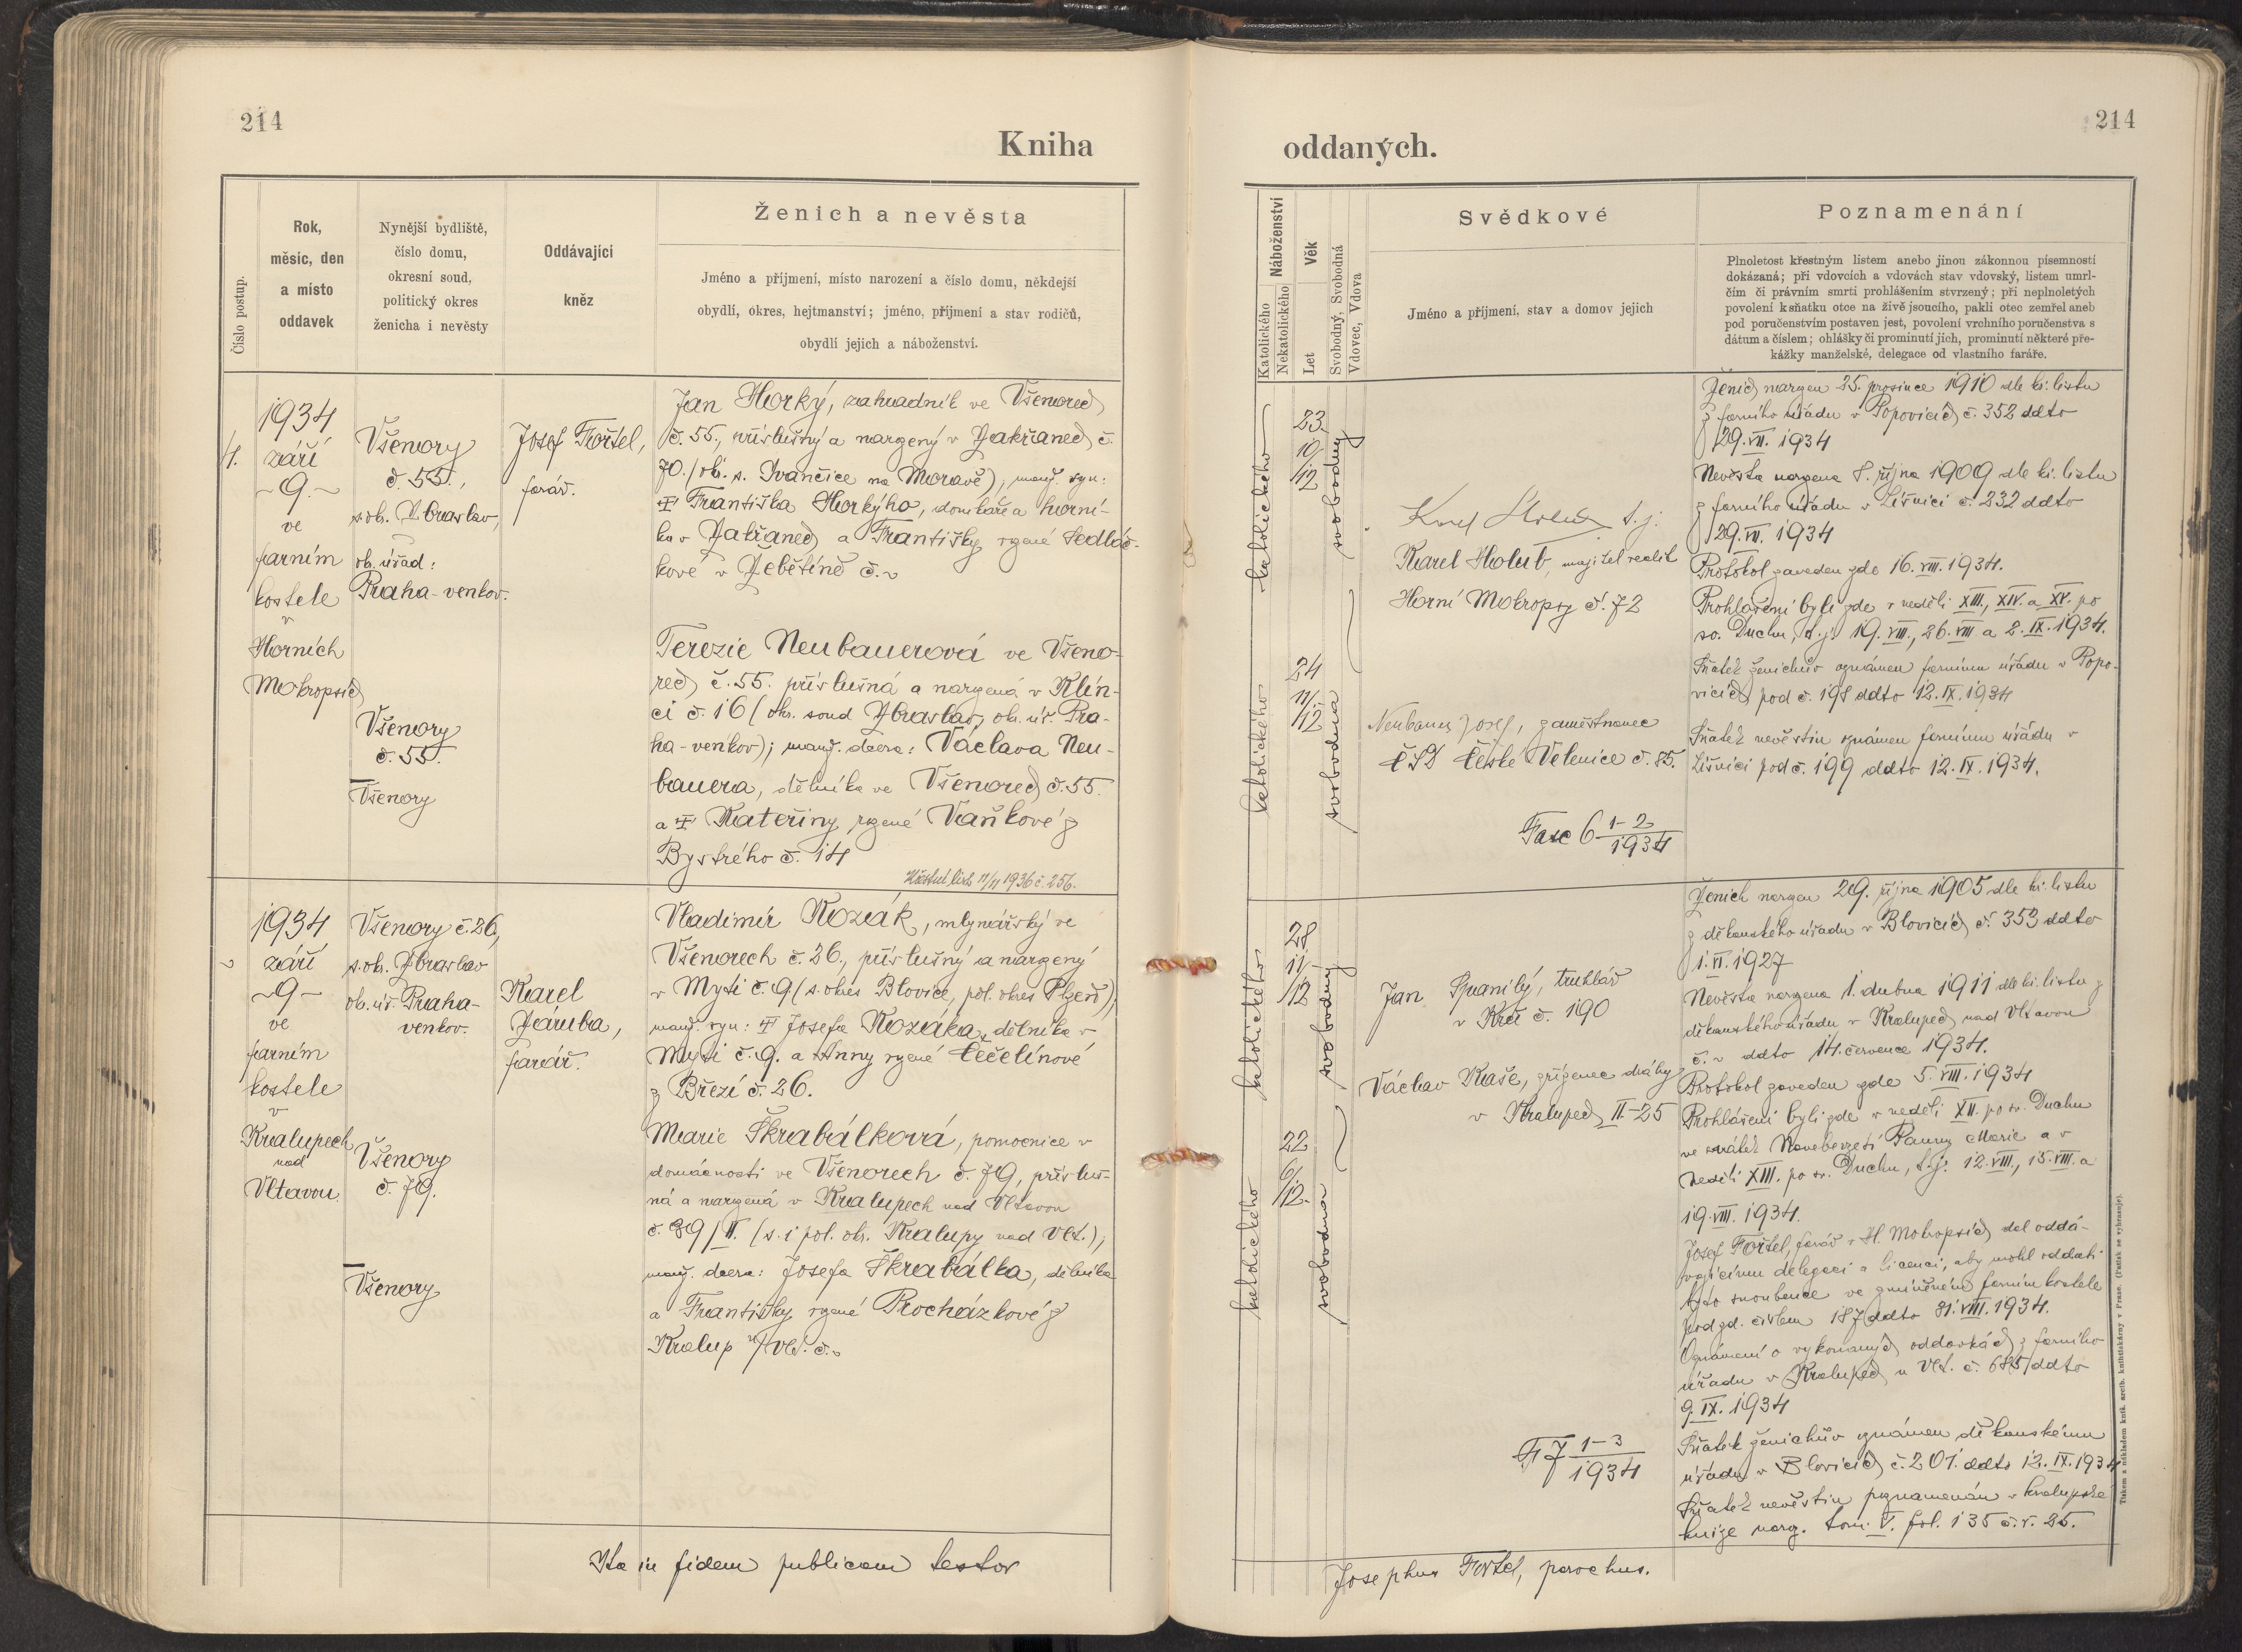 214
Kniha
Číslo postup.
Rok,
měsíc, den
a místo
oddavek
Nynější bydliště,
číslo domu,
okresní soud,
politický okres
ženicha i nevěsty
Oddávající
kněz
Ženich a nevěsta
Jméno a příjmení, místo narození a číslo domu, někdejší
obydlí, okres, hejtmanství; jméno, příjmení a stav rodičů,
obydlí jejich a náboženství.
1934
září
~9.~
ve
farním
kostele
v
Horních
Mokropsích
Všenory
č. 55.,
s. ok. Zbraslav,
ok. úřad:
Praha-venkov.
Všenory
č. 55.
Všenory
Josef Fořtel,
farář.
Jan Horký, zahradník ve Všenorech
č. 55., příslušný a narozený v Zakřanech č.
70. (ok. s. Ivančice na Moravě), manž. syn:
Františka Horkýho, domkáře a horní-
ka v Zakřanech a Františky rozené Sedláč-
kové v Žebětíně č. ~
Terezie Neubauerová ve Všeno-
rech č. 55. příslušná a narozená v Klín-
ci č. 16 (okr. soud Zbraslav, ok. úř. Pra-
ha-venkov); manž. dcera: Václava Neu-
bauera, dělníka ve Všenorech č. 55.
a Kateřiny rozené Vaňkové z
Bystrého č. 14
list 11/11 1936 č. 256.
1934
září
~9~
ve
farním
kostele
v
Kralupech
nad
Vltavou
Všenory č. 26,
s. ok. Zbraslav
ok. úř. Praha-
venkov.
Všenory
č. 79.
Všenory
Karel
Záruba,
farář.
Vladimír Kozák, mlynářský ve
Všenorech č. 26., příslušný a narozený
v Myti č. 9 (s. okres Blovice, pol. okres Plzeň),
manž. syn: Josefa Kozáka, dělníka v
Myti č. 9. a Anny rozené Čečelínové
z Březí č. 26.
Marie Škrabálková, pomocnice v
domácnosti ve Všenorech č. 79, přísluš-
ná a narozená v Kralupech nad Vltavou
č. 89/II. (s. i pol. ok. Kralupy nad Vlt.),
manž. dcera: Josefa Škrabálka, dělníka
a Františky rozené Procházkové z
Kralup n/Vlt. č. ~
Ita in fidem publicam testor
214
oddaných.
Náboženství
Katolického
Nekatolického
Věk
Let
Svobodný, Svobodná
Vdovec, Vdova
Svědkové
Jméno a příjmení, stav a domov jejich
Poznamenání
Plnoletost křestným listem anebo jinou zákonnou písemností
dokázaná; při vdovcích a vdovách stav vdovský, listem umrl-
čím či právním smrti prohlášením stvrzený; při neplnoletých
povolení k sňatku otce na živě jsoucího, pakli otec zemřel aneb
pod poručenstvím postaven jest, povolení vrchního poručenstva s
dátum a číslem; ohlášky či prominutí jich, prominutí některé pře-
kážky manželské, delegace od vlastního faráře.
katolického
23.
10/12
svobodný
Karel Holub t. j.
Karel Holub, majitel realit
Horní Mokropsy č. 72
katolického
24
11/12
svobodná
Neubauer Josef, zaměstnanec
ČSD České Velenice č. 85.
Fasc 6 1-2/1934
Ženich narozen 25. prosince 1910 dle kř. listu
z farního úřadu v Popovicích č. 352 ddto
29. VII. 1934
Nevěsta narozena 8. října 1909 dle kř. listu
z farního úřadu v Líšnici č. 232 ddto
29. VII. 1934
Protokol zaveden zde 16. VIII. 1934.
Prohlášeni byli zde v neděli XIII., XIV. a XV. po
sv. Duchu, t. j. 19. VIII., 26. VIII. a 2. IX. 1934.
Sňatek ženichův oznámen farnímu úřadu v Popo-
vicích pod č. 198 ddto 12. IX. 1934
Sňatek nevěstin oznámen farnímu úřadu v
Líšnici pod č. 199 ddto 12. IX. 1934.
katolického
28
11/12
svobodný
Jan Spanilý, truhlář
v Krči č. 190
Václav Kraše, zřízenec dráhy
v Kralupech II-25
katolického
22
6/12.
svobodná
F 7 1-3/1934
Ženich narozen 29. října 1905 dle kř. listu
z děkanského úřadu v Blovicích č. 353 ddto
1. VI. 1927
Nevěsta narozena 1. dubna 1911 dle kř. listu z
děkanského úřadu v Kralupech nad Vltavou
č. ~ ddto 14. července 1934.
Protokol zaveden zde 5. VIII. 1934
Prohlášeni byli zde v neděli XII. po sv. Duchu
ve svátek Nanebevzetí Panny Marie a v
neděli XIII. po sv. Duchu, t. j. 12. VIII., 15. VIII. a
19. VIII. 1934.
Josef Fořtel, farář v H. Mokropsích dal oddá-
vajícímu delegaci a licenci, aby mohl oddati
tyto snoubence ve zmíněném farním kostele
pod zd. číslem 187 ddto 31. VIII. 1934.
Oznámení o vykonaných oddavkách z farního
úřadu v Kralupech n Vlt. č. 685 ddto
9. IX. 1934
Sňatek ženichův oznámen děkanskému
úřadu v Blovicích č. 201. ddto 12. IX. 1934
Sňatek nevěstin poznamenán v kralupské
knize naroz. tom. V. fol. 135 č. ř. 25.
Josephus Fořtel, parochus.
Tiskem a nákladem kníž. arcib. knihtiskárny v Praze. (Patisk se vyhrazuje).